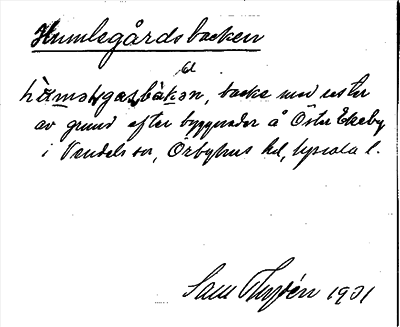 Humlegårdsbacken
backe med rester
av grund efter byggnader å Öster Ekeby
i Vendels sn, Örbyhus hd, Upsala l.
Sam 1931